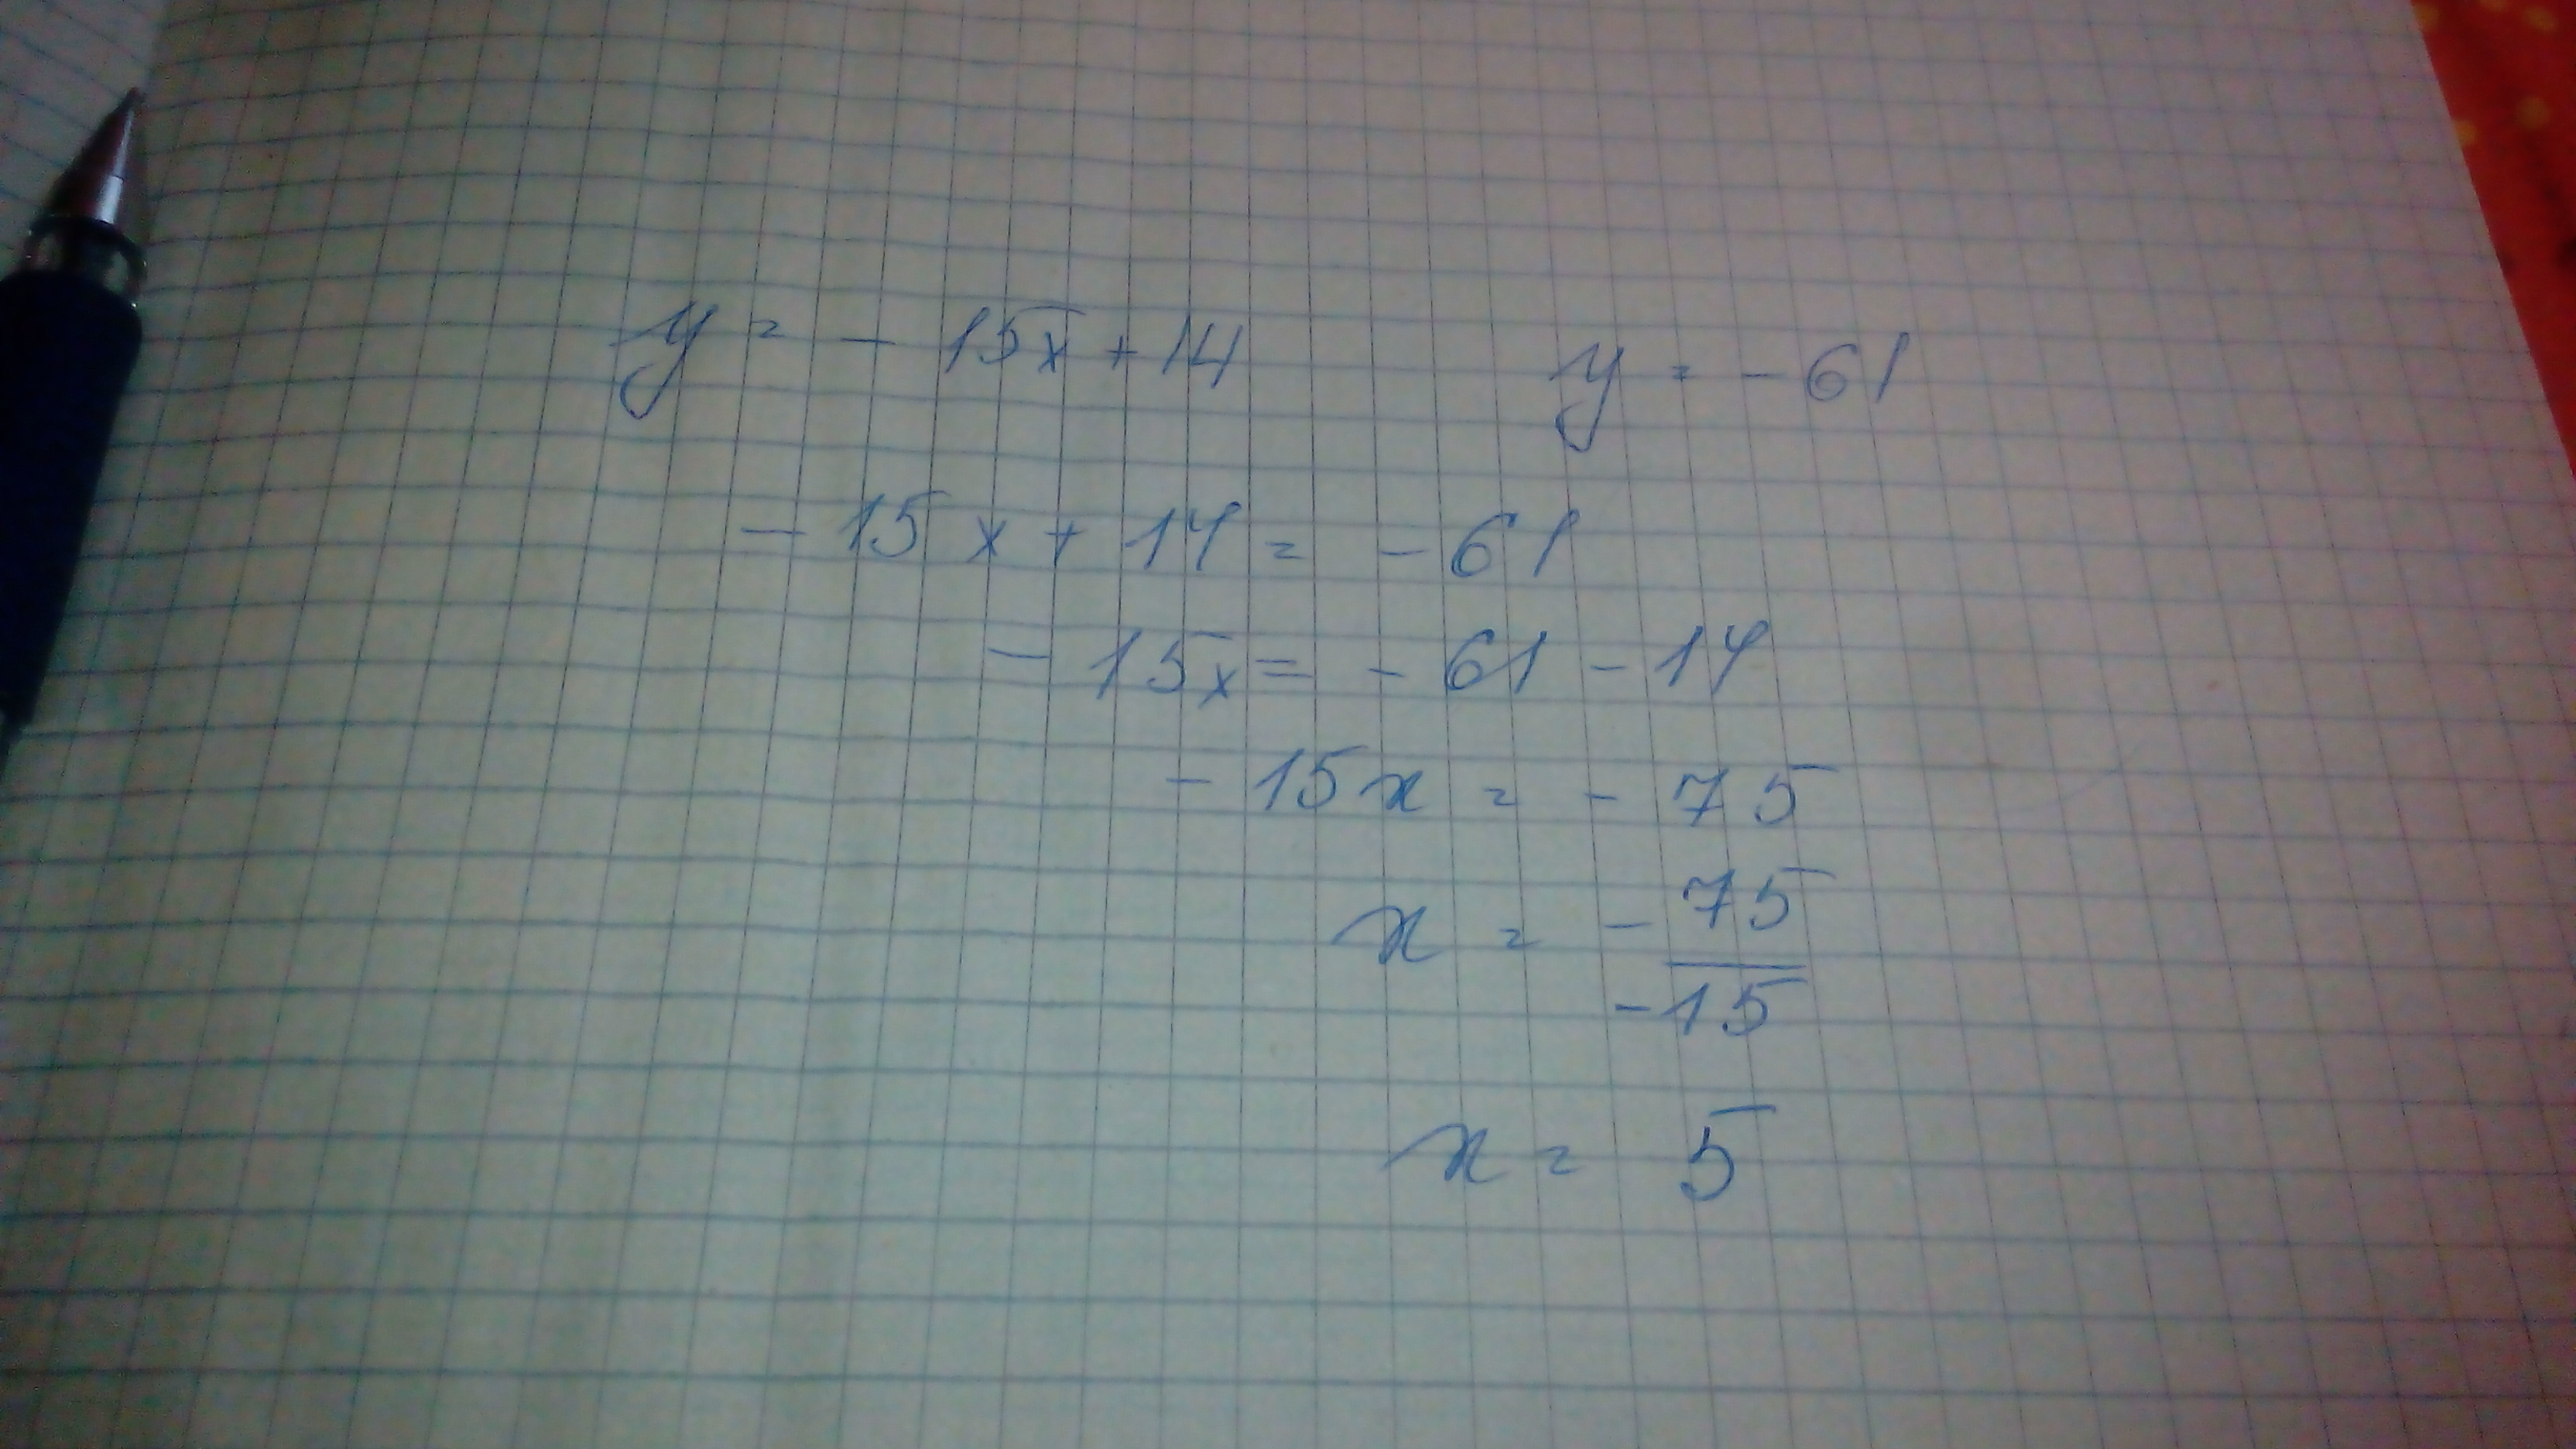 y = - 15x + 14 y = - 61
- 15x + 14 = - 61
- 15x = - 61 - 14
- 15x = - 75
x = - 75
- 15
x = 5